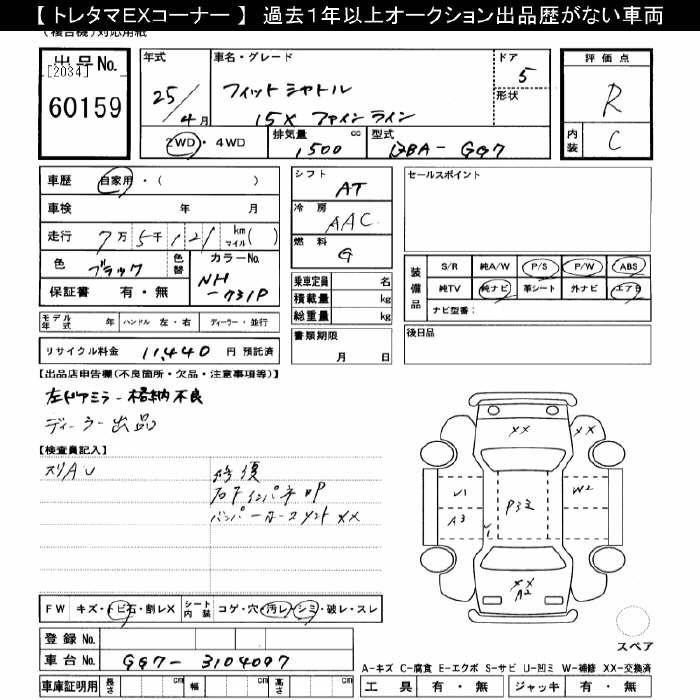 【 トレタマEXコーナー 】 過去1年以上オークション出品歴がない車両
出品No.
[2034]
60159
年式
25/4月
車名・グレード
フィットシャトル
15X ファインライン
ドア
5
形状
2WD・4WD
排気量 cc
1500
型式
DBA- GG7
評価点
R
内装
C
車歴 自家用・( )
車検 年 月
走行 7万5千121 km マイル( )
色 ブラック
色替
カラーNo.
NH-731P
保証書 有・無
モデル年式 年 ハンドル 左・右 ディーラー・並行
リサイクル料金 11,440 円 預託済
シフト
AT
冷房
AAC
燃料
G
乗車定員 名
積載量 kg
総重量 kg
書類期限
月 日
セールスポイント
装備品
S/R 純A/W P/S P/W ABS
純TV 純ナビ 革シート 外ナビ エアB
ナビ型番:
後日品
【出品店申告欄(不良箇所・欠品・注意事項等)】
左ドアミラー格納不良
ディーラー出品
【検査員記入】
スリAU
修須
バンパーホースメント XX
XX
XX
U1
A3
P32
W2
U1
XX
A2
FW キズ・トビ石・割レX シート内装 コゲ・穴・汚レ・シミ・破レ・スレ
登録 No.
車台 No. GG7- 3104097
車庫証明用 長さ cm 幅 cm 高さ cm
スペア
A-キズ C-腐食 E-エクボ S-サビ U-凹ミ W-補修 XX-交換済
工具 有・無 ジャッキ 有・無